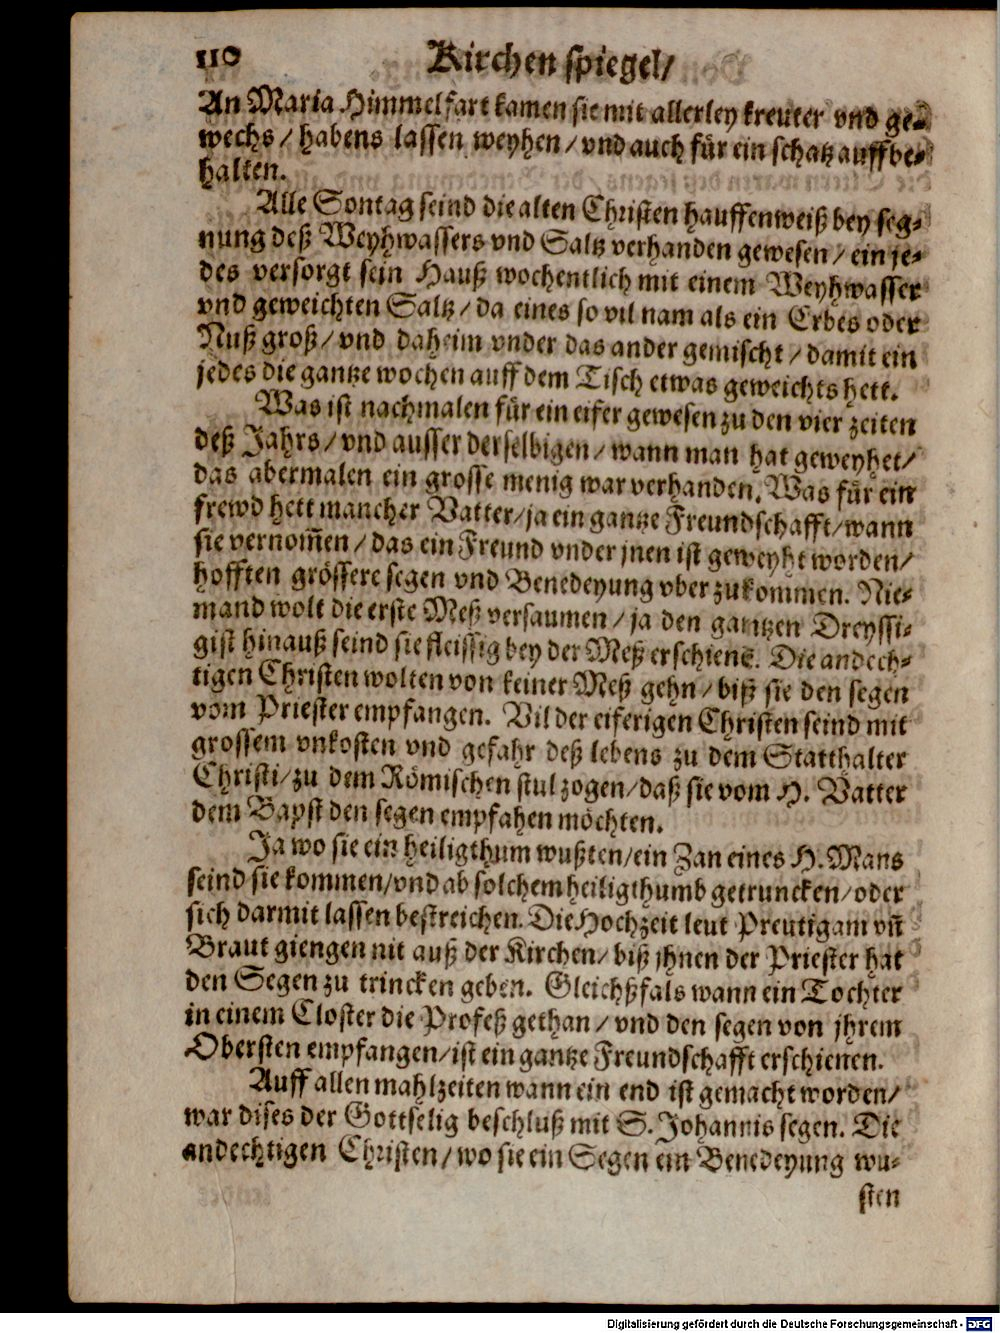 110 Kirchen spiegel/
An Maria Himmelfart kamen sie mit allerley kreuter vnd ge-
wechs / habens lassen weyhen / vnd auch für ein schatz auffbe-
halten.
Alle Sontag seind die alten Christen hauffenweiß bey seg-
nung deß Weyhwassers vnd Saltz verhanden gewesen / ein je-
des versorgt sein Hauß wochentlich mit einem Weyhwasser
vnd geweichten Saltz / da eines so vil nam als ein Erbes oder
Nuß groß / vnd daheim vnder das ander gemischt / damit ein
jedes die gantze wochen auff dem Tisch etwas geweichts hett.
Was ist nachmalen für ein eifer gewesen zu den vier zeiten
deß Jahrs / vnd ausser derselbigen / wann man hat geweyhet/
das abermalen ein grosse menig war verhanden. Was für ein
frewd hett mancher Vatter/ja ein gantze Freundschafft/wann
sie vernom̃en / das ein Freund vnder jnen ist geweyht worden/
hofften grössere segen vnd Benedeyung vber zukommen. Nie-
mand wolt die erste Meß versaumen / ja den gantzen Dreyssi-
gist hinauß seind sie fleissig bey der Meß erschiene. Die andech-
tigen Christen wolten von keiner Meß gehn / biß sie den segen
vom Priester empfangen. Vil der eiferigen Christen seind mit
grossem vnkosten vnd gefahr deß lebens zu dem Statthalter
Christi/zu dem Römischen stul zogen/daß sie vom H. Vatter
dem Bapst den segen empfahen möchten.
Ja wo sie ein heiligthum wußten/ein Zan eines H. Mans
seind sie kommen/vnd ab solchem heiligthumb getruncken/oder
sich darmit lassen bestreichen. Die Hochzeit leut Preutigam vñ
Braut giengen nit auß der Kirchen/ biß jhnen der Priester hat
den Segen zu trincken geben. Gleichßfals wann ein Tochter
in einem Closter die Profeß gethan / vnd den segen von jhrem
Obersten empfangen/ist ein gantze Freundschafft erschienen.
Auff allen mahlzeiten wann ein end ist gemacht worden/
war dises der Gottselig beschluß mit S. Johannis segen. Die
andechtigen Christen / wo sie ein Segen ein Benedeyung wu-
sten
Digitalisierung gefördert durch die Deutsche Forschungsgemeinschaft - DFG